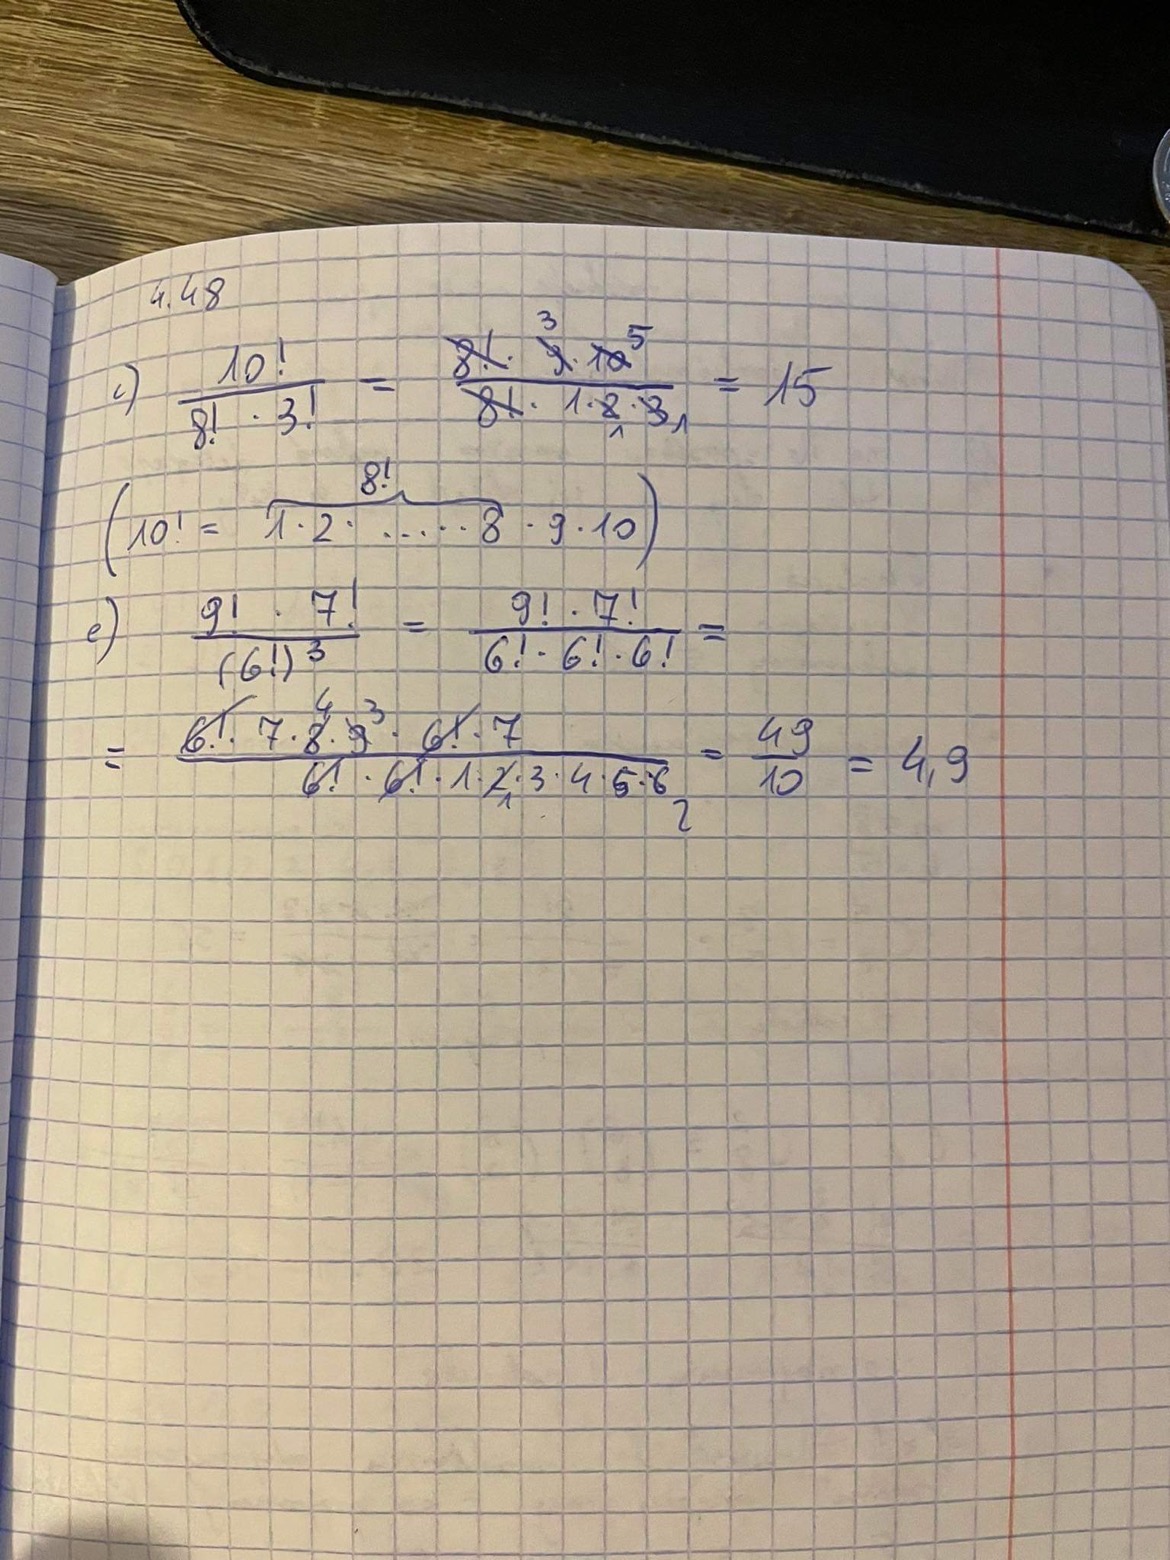 4.48
c) 10! / (8! · 3!) = (8! · 9 · 10) / (8! · 1 · 2 · 3) = 15
3 5
1 1
8!
(10! = 1 · 2 · ..... · 8 · 9 · 10)
e) (9! · 7!) / (6!)³ = (9! · 7!) / (6! · 6! · 6!) =
4 3
= (6! · 7 · 8 · 9 · 6! · 7) / (6! · 6! · 1 · 2 · 3 · 4 · 5 · 6) = 49 / 10 = 4,9
1 2